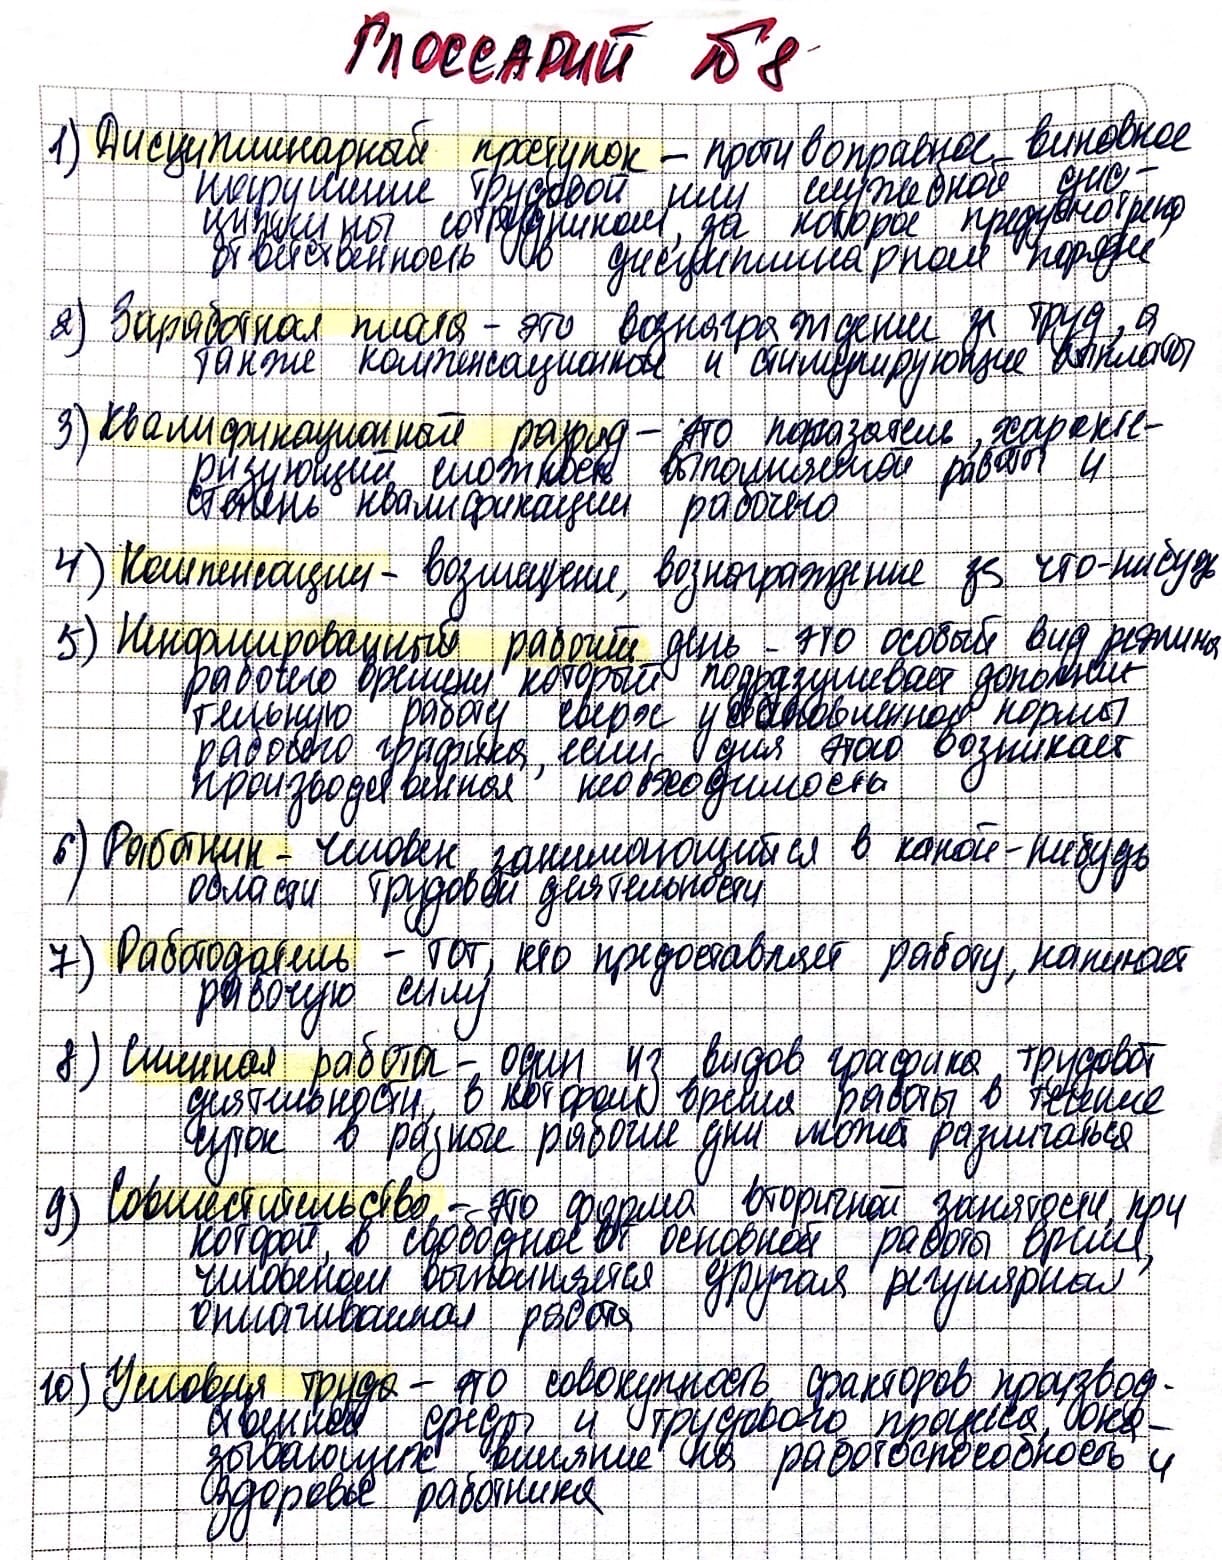 Глоссарий №8
1) Дисциплинарный проступок – противоправное, виновное
нарушение трудовой или служебной дис-
циплины сотрудником, за которое предусмотрена
ответственность в дисциплинарном порядке
2) Заработная плата – это вознаграждение за труд, а
также компенсационные и стимулирующие выплаты
3) Квалификационный разряд – это показатель, характе-
ризующий сложность выполняемой работы и
степень квалификации рабочего
4) Компенсации – возмещение, вознаграждение за что-нибудь
5) Ненормированный рабочий день – это особый вид режима
рабочего времени который подразумевает дополни-
тельную работу сверх установленной нормы
рабочего графика, если для этого возникает
производственная необходимость
6) Работник – человек занимающийся в какой-нибудь
области трудовой деятельности
7) Работодатель – тот, кто предоставляет работу, нанимает
рабочую силу
8) Сменная работа – один из видов графика трудовой
деятельности, в котором время работы в течение
суток в разные рабочие дни может различаться
9) Совместительство – это форма вторичной занятости, при
которой, в свободное от основной работы время,
человеком выполняется другая регулярная
оплачиваемая работа
10) Условия труда – это совокупность факторов производ-
ственной среды и трудового процесса, ока-
зывающих влияние на работоспособность и
здоровье работника